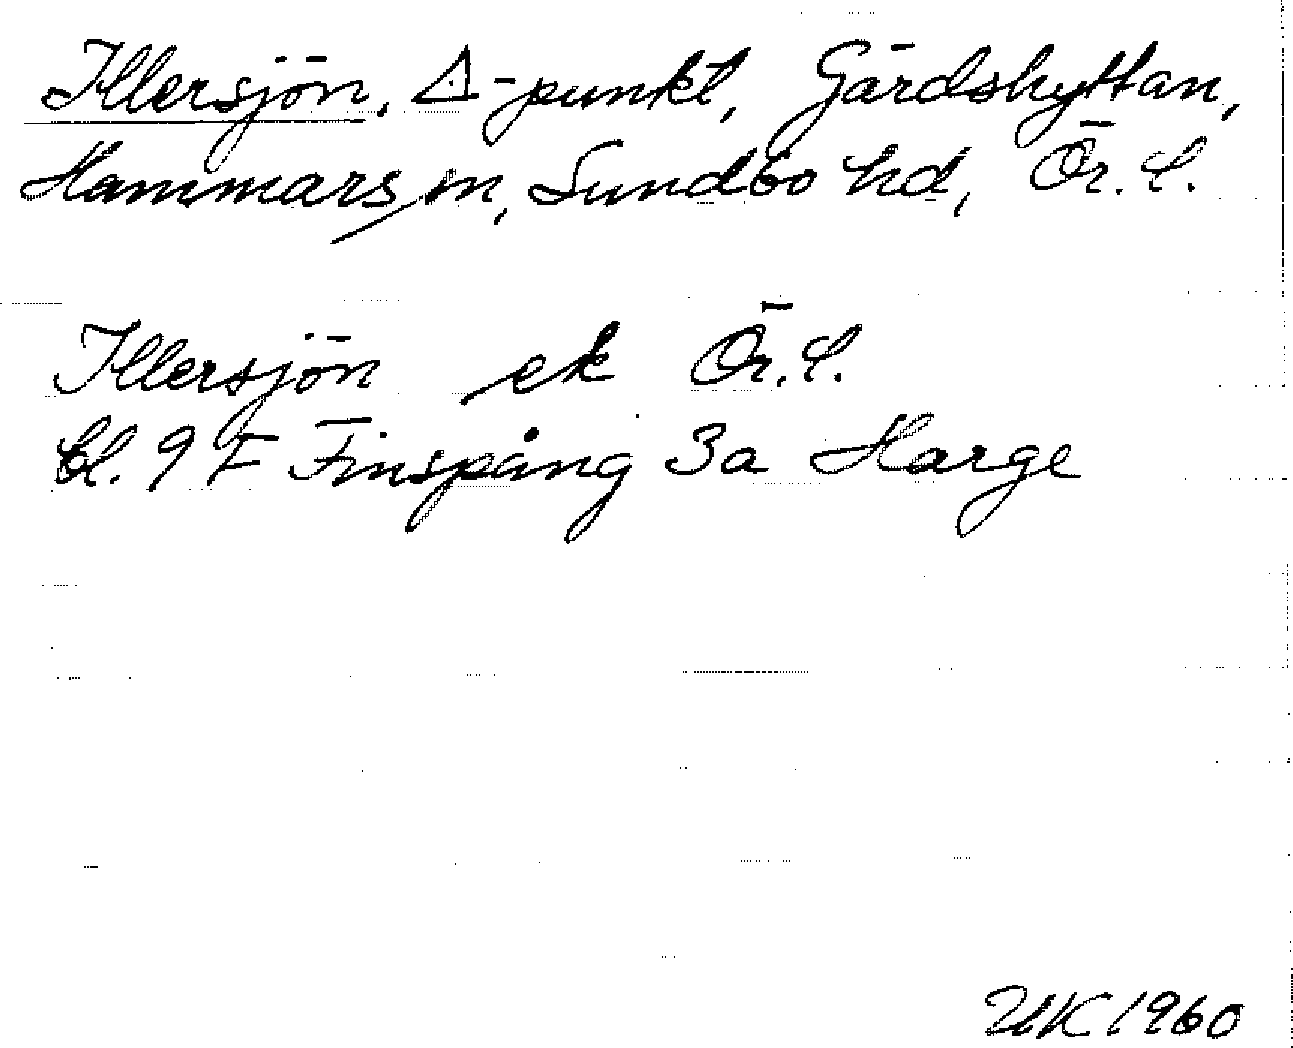 Illersjön, Δ-punkt, Gårdshyttan,
Hammars sn, Sundbo hd, Ör. L.
Illersjön ek Ör. L.
bl. 9 F Finspång 3a Harge
UK 1960